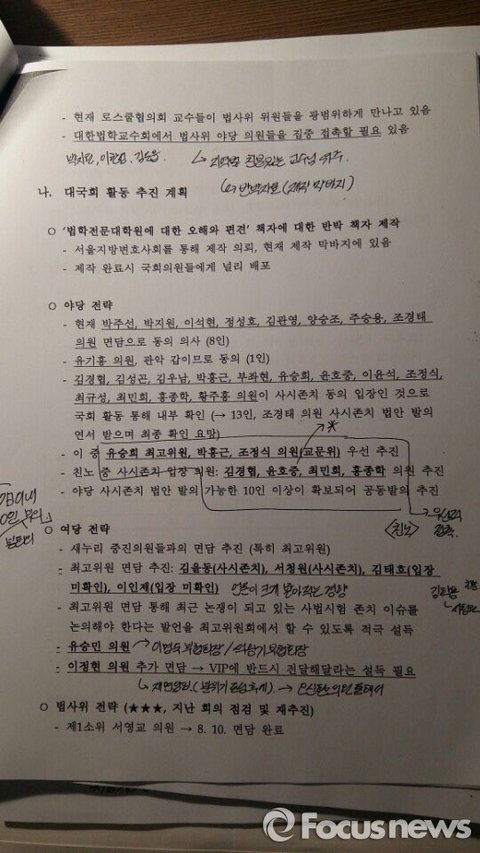 - 현재 로스쿨협의회 교수들이 법사위 위원들을 광범위하게 만나고 있음
- 대한법학교수회에서 법사위 야당 의원들을 집중 접촉할 필요 있음
나. 대국회 활동 추진 계획
○ '법학전문대학원에 대한 오해와 편견' 책자에 대한 반박 책자 제작
- 서울지방변호사회를 통해 제작 의뢰, 현재 제작 막바지에 있음
- 제작 완료시 국회의원들에게 널리 배포
○ 야당 전략
- 현재 박주선, 박지원, 이석현, 정성호, 김관영, 양승조, 주승용, 조경태
의원 면담으로 동의 의사 (8인)
- 유기홍 의원, 관악 갑이므로 동의 (1인)
- 김경협, 김성곤, 김우남, 박홍근, 부좌현, 유승희, 윤호중, 이윤석, 조정식,
최규성, 최민희, 홍종학, 황주홍 의원이 사시존치 동의 입장인 것으로
국회 활동 통해 내부 확인 (→ 13인, 조경태 의원 사시존치 법안 발의
면서 받으며 최종 확인 요망)
- 이 중 유승희 최고위원, 박홍근, 조정식 의원(교문위) 우선 추진
- 친노 중 사시존치 입장 의원: 김경협, 윤호중, 최민희, 홍종학 의원 추진
- 야당 사시존치 법안 발의 가능한 10인 이상이 확보되어 공동발의 추진
<친노>
○ 여당 전략
- 새누리 중진의원들과의 면담 추진 (특히 최고위원)
- 최고위원 면담 추진: 김을동(사시존치), 서청원(사시존치), 김태호(입장
미확인), 이인제(입장 미확인)
- 최고위원 면담 통해 최근 논쟁이 되고 있는 사법시험 존치 이슈를
논의해야 한다는 발언을 최고위원회에서 할 수 있도록 적극 설득
- 유승민 의원
- 이정현 의원 추가 면담 → VIP에 반드시 전달해달라는 설득 필요
○ 법사위 전략 (★★★, 지난 회의 점검 및 재추진)
- 제1소위 서영교 의원 → 8. 10. 면담 완료
Focusnews